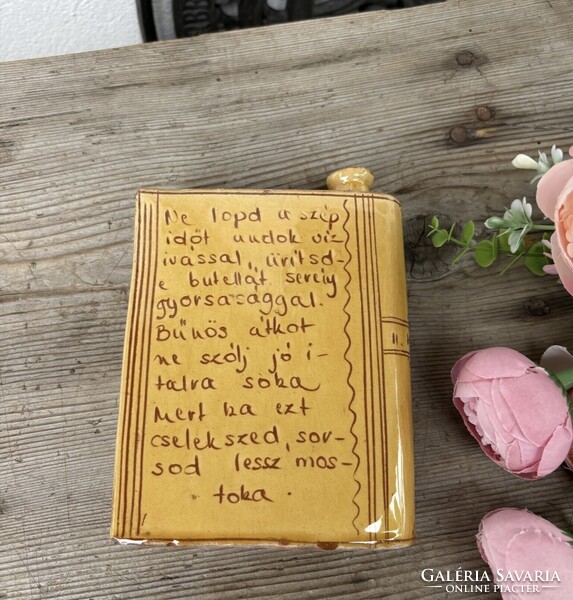 Ne lopd a szép
időt undok víz
ivással, ürítsd-
e butellát serény
gyorsasággal.
Bűnös átkot
ne szólj jó i-
talra soka
Mert ha ezt
cselekszed, sor-
sod lessz mos-
toka.
GALÉRIA SAVARIA
ONLINE PIACTÉR